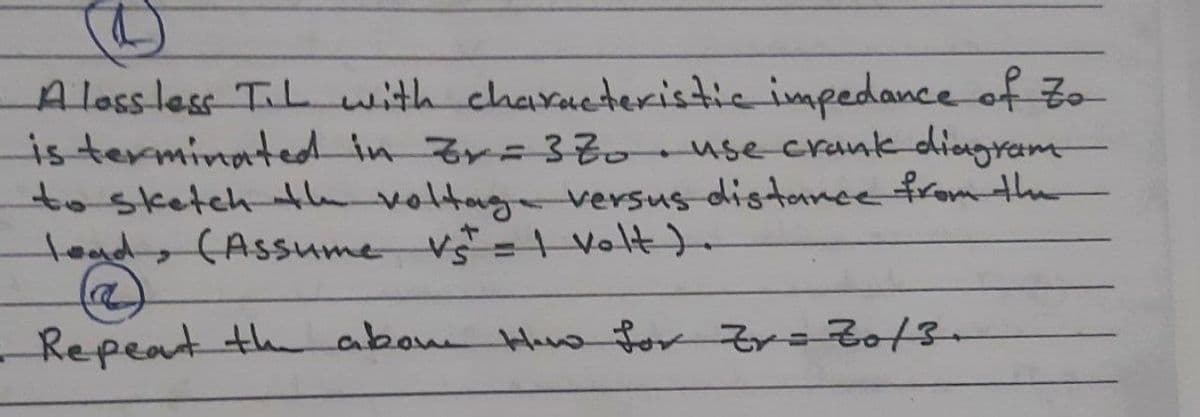 1
A lossless T.L with characteristic impedance of Zo
is terminated in Zr = 3Zo. use crank diagram
to sketch the voltage versus distance from the
load, (Assume Vs+ = 1 Volt).
2
Repeat the above for Zr = Zo/3.